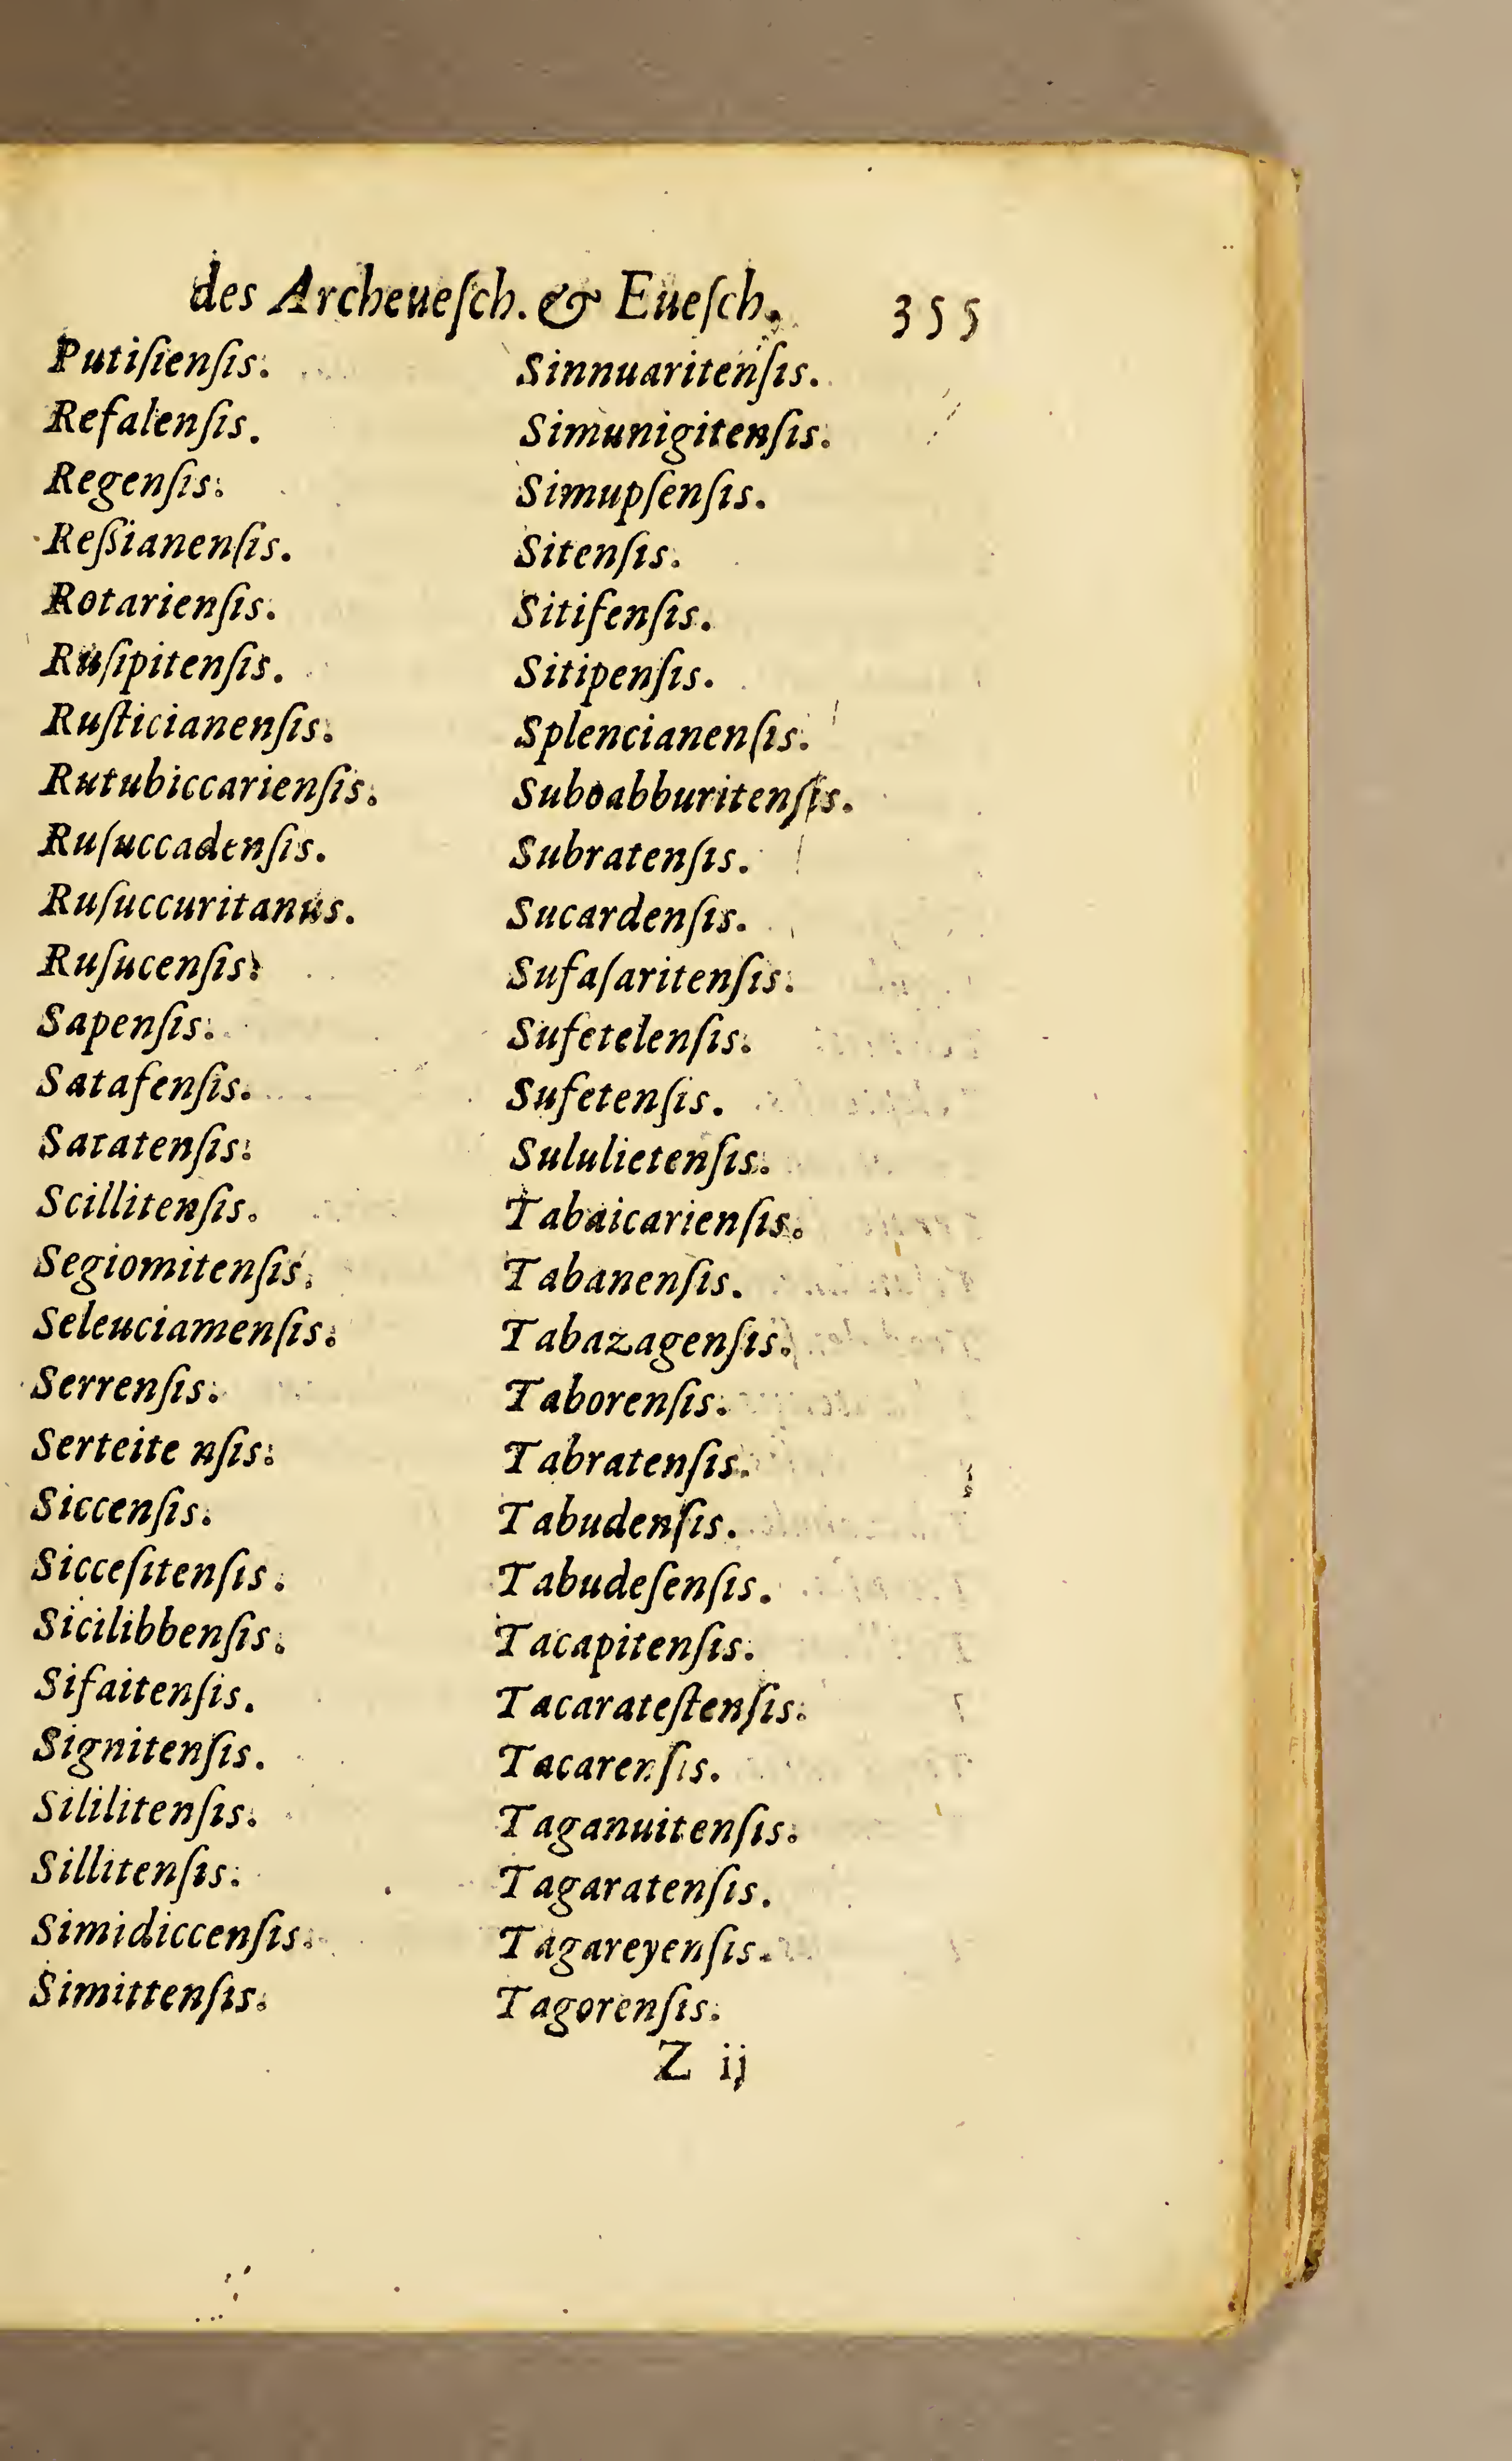 des Archeueſch. & Eueſch. 355
Putiſienſis.
Refalenſis.
Regenſis.
Reſſianenſis.
Rotarienſis.
Ruſipitenſis.
Ruſticianenſis.
Rutubiccarienſis.
Ruſuccadenſis.
Ruſuccuritanus.
Ruſucenſis.
Sapenſis.
Satafenſis.
Satatenſis.
Scillitenſis.
Segiomitenſis.
Seleuciamenſis.
Serrenſis.
Serteite nſis.
Siccenſis.
Sicceſitenſis.
Sicilibbenſis.
Sifaitenſis.
Signitenſis.
Sililitenſis.
Sillitenſis.
Simidiccenſis.
Simittenſis.
Sinnuaritenſis.
Simunigitenſis.
Simupſenſis.
Sitenſis.
Sitifenſis.
Sitipenſis.
Splencianenſis.
Suboabburitenſis.
Subratenſis.
Sucardenſis.
Sufaſaritenſis.
Sufetelenſis.
Sufetenſis.
Sululietenſis.
Tabaicarienſis.
Tabanenſis.
Tabazagenſis.
Taborenſis.
Tabratenſis.
Tabudenſis.
Tabudeſenſis.
Tacapitenſis.
Tacarateſtenſis.
Tacarenſis.
Taganuitenſis.
Tagaratenſis.
Tagareyenſis.
Tagorenſis.
Z ij